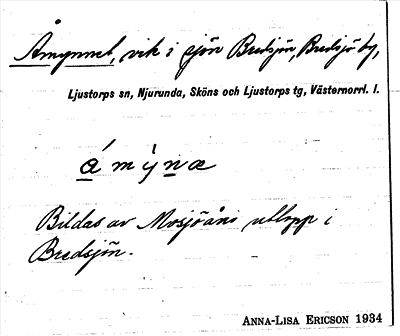 Åmynnet, vik i sjön Bredsjön, Bredsjö by,
Ljustorps sn, Njurunda, Sköns och Ljustorps tg, Västernorrl. l.
á m ẏ n æ
Bildas av Mosjöåns utlopp i
Bredsjön.
ANNA-LISA ERICSON 1934